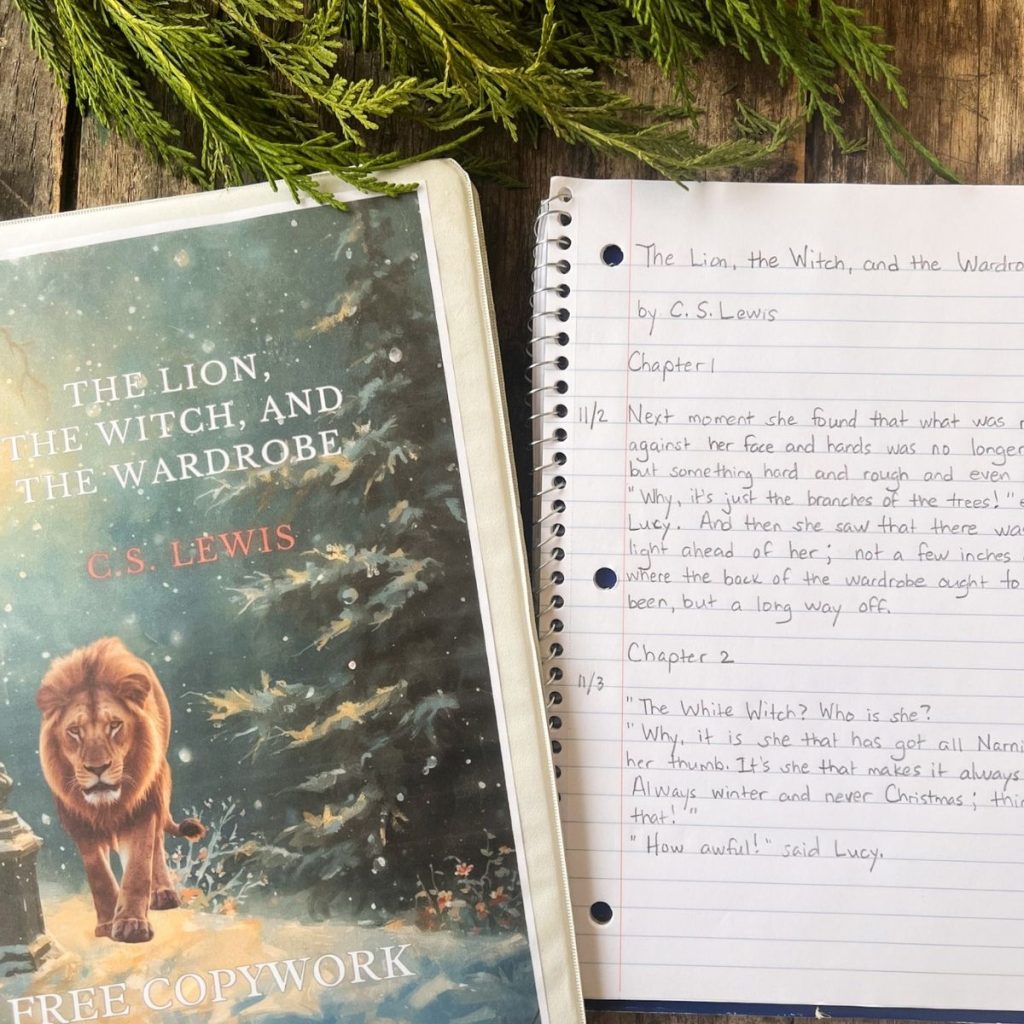 THE LION,
THE WITCH, AND
THE WARDROBE
C.S. LEWIS
FREE COPYWORK
The Lion, the Witch, and the
by C. S. Lewis
Chapter 1
11/2 Next moment she found that what was
against her face and hands was no longer
but something hard and rough and even
"Why, it's just the branches of the trees!"
Lucy. And then she saw that there
light ahead of her; not a few inches
where the back of the wardrobe ought to
been, but a long way off.
Chapter 2
11/3
"The White Witch? Who is she?
"Why, it is she that has got all
her thumb. It's she that makes it always
Always winter and never Christmas;
that!"
"How awful!" said Lucy.